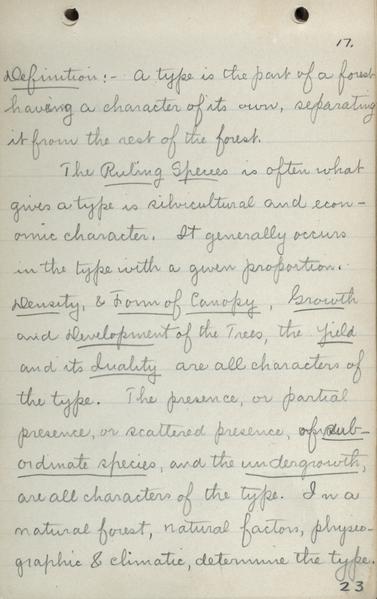 17.
Definition:- A type is the part of a forest
having a character of its own, separating
it from the rest of the forest.
The Ruling Species is often what
gives a type is silvicultural and econ-
omic character. It generally occurs
in the type with a given proportion.
Density, & Form of Canopy, Growth
and Development of the Trees, the Yield
and its Quality are all characters of
the type. The presence, or partial
presence, or scattered presence, of sub-
ordinate species, and the undergrowth,
are all characters of the type. In a
natural forest, natural factors, physio-
graphic & climatic, determine the type.
23